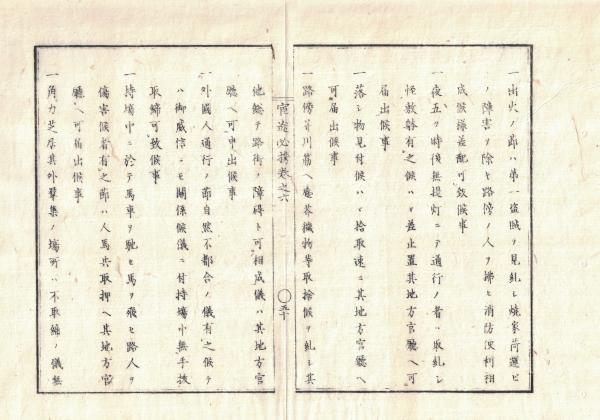 一出火ノ節ハ第一盗賊ヲ見糺シ焼家荷運ヒ
ノ障害ヲ除キ路傍ノ人ヲ掃ヒ消防便利相
成候様差配可致候事
一夜五ツ時後無提灯ニテ通行ノ者ハ取糺シ
怪敷躰有之候ハヽ差止置其地方官廳ヘ可
届出候事
一落シ物見付候ハヽ拾取速ニ其地方官廳ヘ
可届出候事
一路傍并川筋ヘ塵芥穢物等取捨候ヲ糺シ其
官途必携巻之六
五十
他総テ路街ノ障碍ト可相成儀ハ其地方官
廳ヘ可申出候事
一外國人通行ノ節自然不都合ノ儀有之候テ
ハ御威信ニモ關係候儀ニ付持場中無手抜
取締可致候事
一持場中ニ於テ馬車ヲ馳セ馬ヲ飛セ路人ヲ
傷害候者有之節ハ人馬共取押ヘ其地方官
廳ヘ可届出候事
一角力芝居其外群集ノ場所ハ不取締ノ儀無